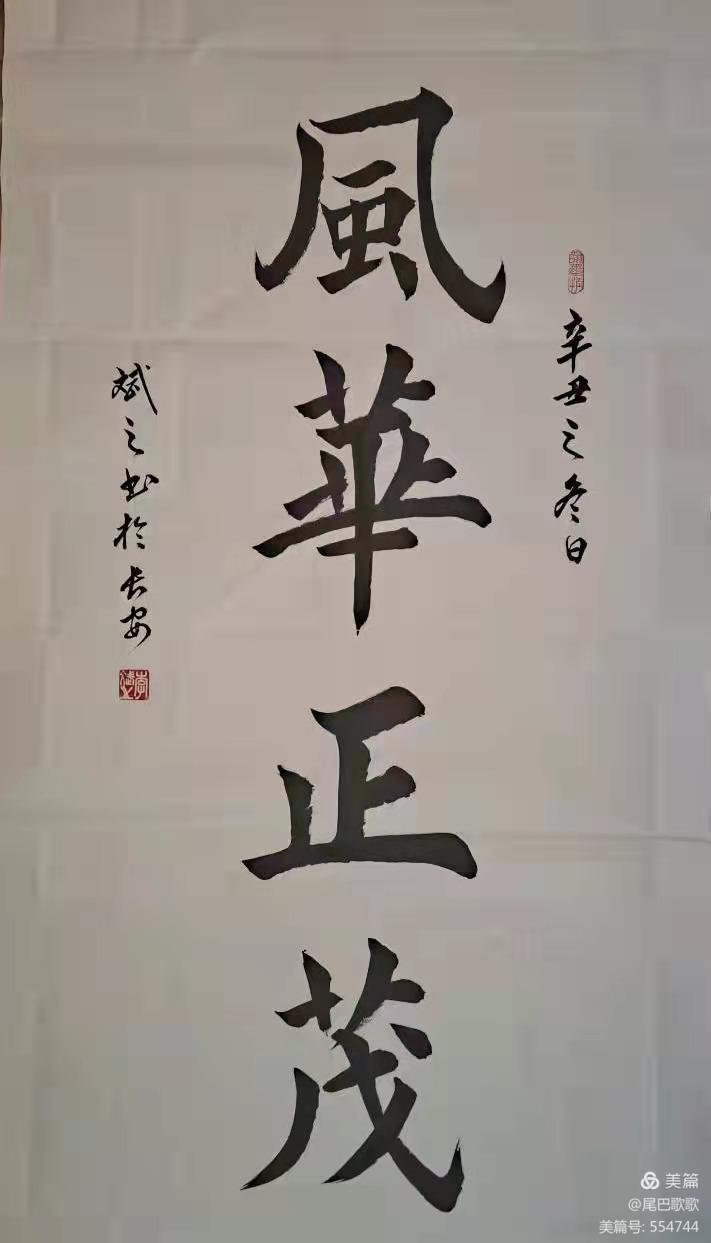 風華正茂
辛丑之冬日
斌之书於长安
美篇
@尾巴歌歌
美篇号: 554744